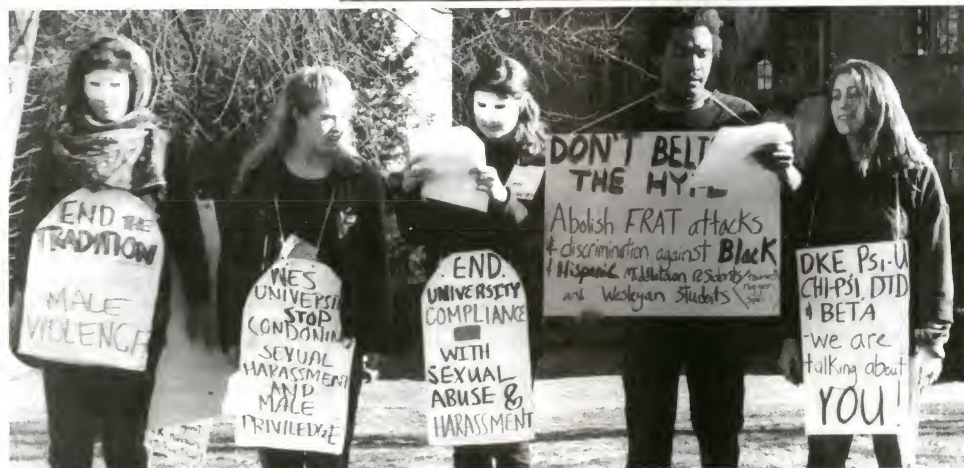 END THE
TRADITION
MALE
VIOLENCE
WES
UNIVERSI
STOP
CONDONIN
SEXUAL
HARASSMENT
AND
MALE
PRIVILEDGE
END
UNIVERSITY
COMPLIANCE
WITH
SEXUAL
ABUSE &
HARASSMENT
DON'T BELI
THE HY
Abolish FRAT attacks
& discrimination against Black
& Hispanic Middletown residents
and Wesleyan Students
DKE, PSI-U
CHI-PSI, DTD
& BETA
-we are
talking about
YOU!